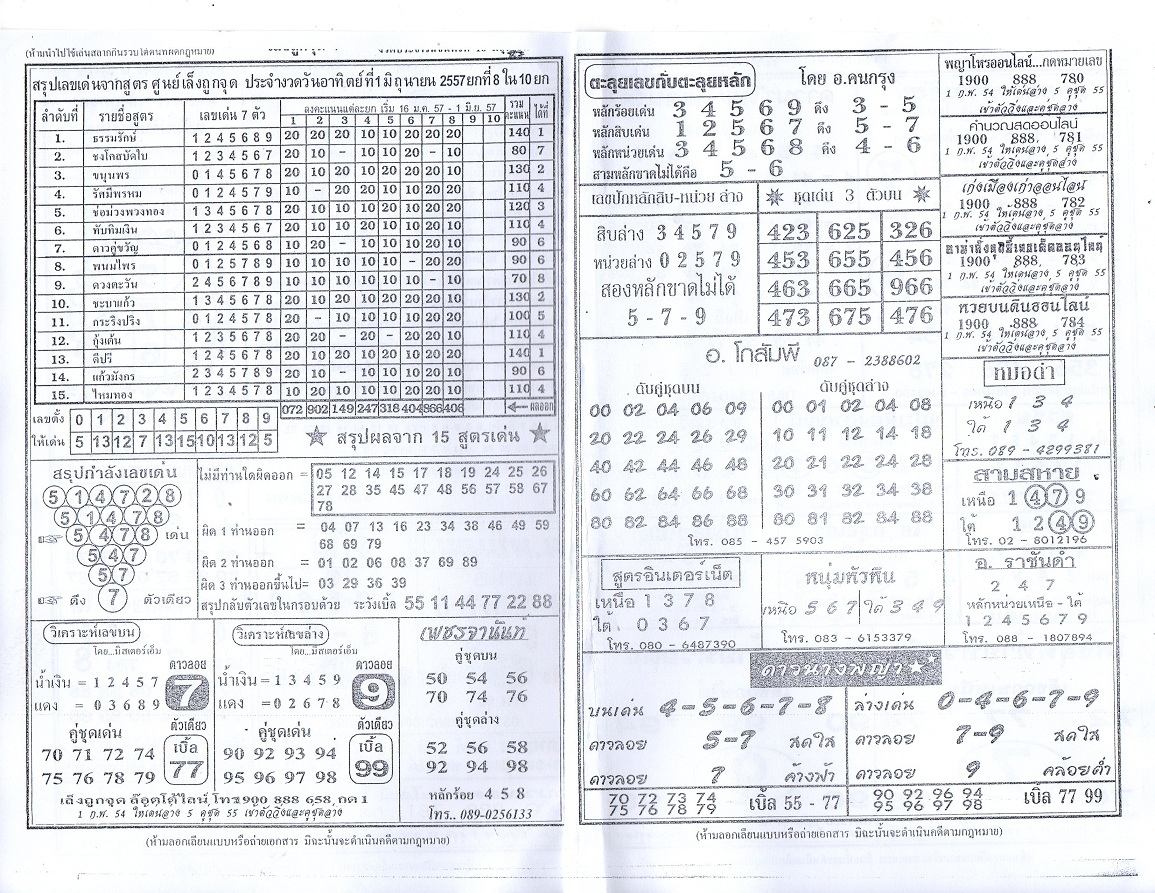 (ห้ามนำไปใช้เล่นสลากกินรวบ
สรุปเลขเด่นจากสูตร ศูนย์เล็งถูกจุด ประจำงวดวันอาทิตย์ที่ 1 มิถุนายน 2557 ยกที่ 8 ใน 10 ยก
ลำดับที่ รายชื่อสูตร เลขเด่น 7 ตัว ลงคะแนนแต่ละยก เริ่ม 16 ม.ค. 57 - 1 มิ.ย. 57 รวมคะแนน ได้ที่
1 2 3 4 5 6 7 8 9 10
1. ธรรมรักษ์ 1 2 4 5 6 8 9 20 20 20 10 10 20 20 20 140 1
2. ชงโคสบัดใบ 1 2 3 4 5 6 7 20 10 – 10 10 20 – 10 80 7
3. ขนุนพร 0 1 4 5 6 7 8 20 20 10 10 20 20 20 10 130 2
4. รัศมีพรหม 0 1 2 4 5 7 9 10 – 20 20 20 10 20 10 110 4
5. ช่อม่วงพวงทอง 1 3 4 5 6 7 8 20 10 10 10 20 10 20 20 120 3
6. ทับทิมเงิน 1 2 3 4 5 6 7 20 10 – 20 10 20 20 10 110 4
7. ดาวคู่ขวัญ 0 1 2 4 5 6 8 10 20 – 10 10 10 20 10 90 6
8. พนมไพร 0 1 2 5 7 8 9 10 10 10 10 10 – 20 20 90 6
9. ดวงตะวัน 2 4 5 6 7 8 9 10 10 10 10 10 10 – 10 70 8
10. ชะบาแก้ว 1 3 4 5 6 7 8 20 10 20 10 20 20 20 10 130 2
11. กระริงปริง 0 1 2 4 5 7 8 20 – 10 10 20 10 20 10 100 5
12. กุ้งเต้น 1 2 3 5 6 7 8 20 20 – 20 – 20 20 10 110 4
13. ดีปรี 1 2 4 5 6 7 8 20 10 20 20 10 20 20 20 140 1
14. แก้วมังกร 2 3 4 5 7 8 9 20 10 – 10 10 10 10 20 90 6
15. ไหมทอง 1 2 3 4 5 7 8 10 20 10 10 10 20 20 10 110 4
072 902 149 247 318 404 866 408 ผลออก
เลขตั้ง 0 1 2 3 4 5 6 7 8 9
ให้เด่น 5 13 12 7 13 15 10 13 12 5
สรุปผลจาก 15 สูตรเด่น
สรุปกำลังเลขเด่น
5 1 4 7 2 8
5 1 4 7 8
5 4 7 8 เด่น
5 4 7
5 7
ดึง 7 ตัวเดียว
ไม่มีท่านใดผิดออก = 05 12 14 15 17 18 19 24 25 26
27 28 35 45 47 48 56 57 58 67
78
ผิด 1 ท่านออก = 04 07 13 16 23 34 38 46 49 59
68 69 79
ผิด 2 ท่านออก = 01 02 06 08 37 69 89
ผิด 3 ท่านออกขึ้นไป = 03 29 36 39
สรุปกลับตัวเลขในกรอบด้วย ระวังเบิ้ล 55 11 44 77 22 88
วิเคราะห์เลขบน
โดย...มิสเตอร์เอ็ม
น้ำเงิน = 1 2 4 5 7
แดง = 0 3 6 8 9
ดาวลอย
7
คู่ชุดเด่น
70 71 72 74
75 76 78 79
ตัวเดียว
เบิ้ล
77
วิเคราะห์เลขล่าง
โดย...มิสเตอร์เอ็ม
น้ำเงิน = 1 3 4 5 9
แดง = 0 2 6 7 8
ดาวลอย
9
คู่ชุดเด่น
90 92 93 94
95 96 97 98
ตัวเดียว
เบิ้ล
99
เล็งถูกจุด ล๊อตโต้ไลน์ โทร 1900 888 658 กด 1
1 ก.พ. 54 ให้เด่นล่าง 5 คู่ชุด 55 เข้าตัววิ่งและคู่ชุดล่าง
เพชรจานันท์
คู่ชุดบน
50 54 56
70 74 76
คู่ชุดล่าง
52 56 58
92 94 98
หลักร้อย 4 5 8
โทร.. 089-0256133
(ห้ามลอกเลียนแบบหรือถ่ายเอกสาร มิฉะนั้นจะดำเนินคดีตามกฎหมาย)
ตะลุยเลขกับตะลุยหลัก โดย อ.คนกรุง
หลักร้อยเด่น 3 4 5 6 9 ดึง 3 - 5
หลักสิบเด่น 1 2 5 6 7 ดึง 5 - 7
หลักหน่วยเด่น 3 4 5 6 8 ดึง 4 - 6
สามหลักขาดไม่ได้คือ 5 - 6
เลขปักหลักสิบ-หน่วย ล่าง
สิบล่าง 3 4 5 7 9
หน่วยล่าง 0 2 5 7 9
สองหลักขาดไม่ได้
5 - 7 - 9
ชุดเด่น 3 ตัวบน
423 625 326
453 655 456
463 665 966
473 675 476
อ. โกสัมพี 087 - 2388602
ดับคู่ชุดบน
00 02 04 06 09
20 22 24 26 29
40 42 44 46 48
60 62 64 66 68
80 82 84 86 88
ดับคู่ชุดล่าง
00 01 02 04 08
10 11 12 14 18
20 21 22 24 28
30 31 32 34 38
80 81 82 84 88
โทร. 085 - 457 5903
พญาโหรออนไลน์...กดหมายเลข
1900 888 780
1 ก.พ. 54 ให้เด่นล่าง 5 คู่ชุด 55
เข้าตัววิ่งและคู่ชุดล่าง
คำนวณสดออนไลน์
1900 888 781
1 ก.พ. 54 ให้เด่นล่าง 5 คู่ชุด 55
เข้าตัววิ่งและคู่ชุดล่าง
เก่งเมืองเก่าออนไลน์
1900 888 782
1 ก.พ. 54 ให้เด่นล่าง 5 คู่ชุด 55
เข้าตัววิ่งและคู่ชุดล่าง
1900 888 783
1 ก.พ. 54 ให้เด่นล่าง 5 คู่ชุด 55
เข้าตัววิ่งและคู่ชุดล่าง
หวยบนดินออนไลน์
1900 888 784
1 ก.พ. 54 ให้เด่นล่าง 5 คู่ชุด 55
เข้าตัววิ่งและคู่ชุดล่าง
หมอดำ
เหนือ 1 3 4
ใต้ 1 3 4
โทร. 089 - 4299381
สามสหาย
เหนือ 1 4 7 9
ใต้ 1 2 4 9
โทร. 02 - 8012196
สูตรอินเตอร์เน็ต
เหนือ 1 3 7 8
ใต้ 0 3 6 7
โทร. 080 - 6487390
หนุ่มหัวหิน
เหนือ 5 6 7 ใต้ 3 4 9
โทร. 083 - 6153379
อ. ราชันดำ
2 4 7
หลักหน่วยเหนือ - ใต้
1 2 4 5 6 7 9
โทร. 088 - 1807894
ดาวนางพญา
บนเด่น 4-5-6-7-8
ดาวลอย 5-7 สดใส
ดาวลอย 7 ค้างฟ้า
70 72 73 74
75 76 78 79
เบิ้ล 55 - 77
ล่างเด่น 0-4-6-7-9
ดาวลอย 7-9 สดใส
ดาวลอย 9 คล้อยต่ำ
90 92 96 94
95 96 97 98
เบิ้ล 77 99
(ห้ามลอกเลียนแบบหรือถ่ายเอกสาร มิฉะนั้นจะดำเนินคดีตามกฎหมาย)